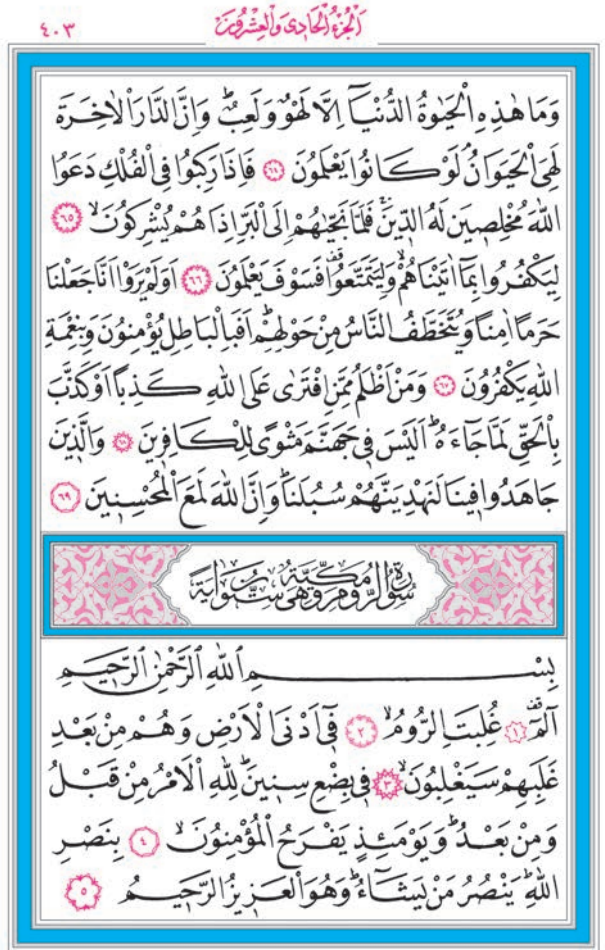 اَلْجُزْءُ الْحَادِى وَالْعِشْرُونَ
٤٠٣
وَمَا هٰذِهِ الْحَيٰوةُ الدُّنْيَٓا اِلَّا لَهْوٌ وَلَعِبٌۜ وَاِنَّ الدَّارَ الْاٰخِرَةَ
لَهِىَ الْحَيَوَانُۢ لَوْ كَانُوا يَعْلَمُونَ ﴿٦٤﴾ فَاِذَا رَكِبُوا فِى الْفُلْكِ دَعَوُا
اللّٰهَ مُخْلِصِينَ لَهُ الدِّينَۚ فَلَمَّا نَجّٰيهُمْ اِلَى الْبَرِّ اِذَا هُمْ يُشْرِكُونَۙ ﴿٦٥﴾
لِيَكْفُرُوا بِمَٓا اٰتَيْنَاهُمْۙ وَلِيَتَمَتَّعُوا۠ فَسَوْفَ يَعْلَمُونَ ﴿٦٦﴾ اَوَلَمْ يَرَوْا اَنَّا جَعَلْنَا
حَرَمًا اٰمِنًا وَيُتَخَطَّفُ النَّاسُ مِنْ حَوْلِهِمْۜ اَفَبِالْبَاطِلِ يُؤْمِنُونَ وَبِنِعْمَةِ
اللّٰهِ يَكْفُرُونَ ﴿٦٧﴾ وَمَنْ اَظْلَمُ مِمَّنِ افْتَرٰى عَلَى اللّٰهِ كَذِبًا اَوْ كَذَّبَ
بِالْحَقِّ لَمَّا جَٓاءَهُۜ اَلَيْسَ فِى جَهَنَّمَ مَثْوًى لِلْكَافِرِينَ ﴿٦٨﴾ وَالَّذِينَ
جَاهَدُوا فِينَا لَنَهْدِيَنَّهُمْ سُبُلَنَاۜ وَاِنَّ اللّٰهَ لَمَعَ الْمُحْسِنِينَ ﴿٦٩﴾
سُورَةُ الرُّومِ مَكِّيَّةٌ وَهِىَ سِتُّونَ اٰيَةً
بِسْمِ اللّٰهِ الرَّحْمٰنِ الرَّحِيمِ
الٓمٓۚ ﴿١﴾ غُلِبَتِ الرُّومُۙ ﴿٢﴾ فِٓى اَدْنَى الْاَرْضِ وَهُمْ مِنْ بَعْدِ
غَلَبِهِمْ سَيَغْلِبُونَۙ ﴿٣﴾ فِى بِضْعِ سِنِينَۜ لِلّٰهِ الْاَمْرُ مِنْ قَبْلُ
وَمِنْ بَعْدُۜ وَيَوْمَئِذٍ يَفْرَحُ الْمُؤْمِنُونَۙ ﴿٤﴾ بِنَصْرِ
اللّٰهِۜ يَنْصُرُ مَنْ يَشَٓاءُۜ وَهُوَ الْعَزِيزُ الرَّحِيمُ ﴿٥﴾